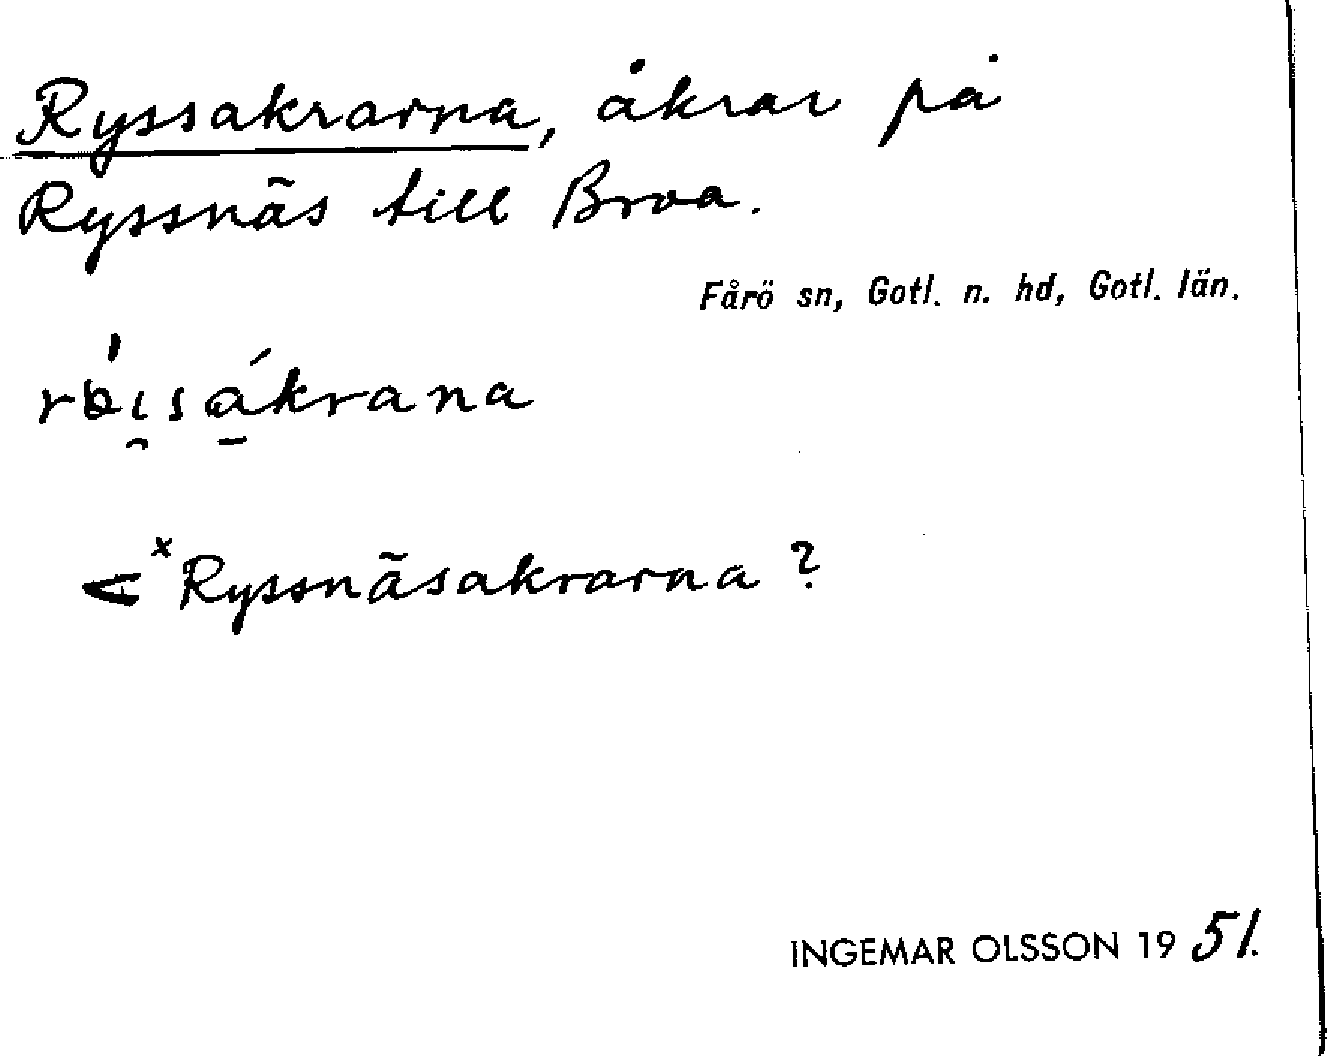 Ryssakrarna, åkrar på
Ryssnäs till Broa.
Fårö sn, Gotl. n. hd, Gotl. län.
< ˣRyssnäsakrarna ?
INGEMAR OLSSON 1951.